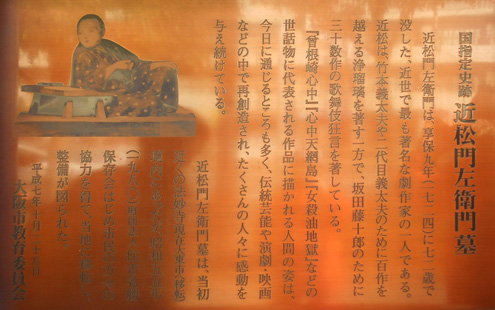 国指定史跡 近松門左衛門墓
近松門左衛門は、享保九年(一七二四)に七二歳で
没した、近世で最も著名な劇作家の一人である。
近松は、竹本義太夫や二代目義太夫のために百作を
越える浄瑠璃を著す一方で、坂田藤十郎のために
三十数作の歌舞伎狂言を著している。
『曾根崎心中』『心中天網島』『女殺油地獄』などの
世話物に代表される作品に描かれる人間の姿は、
今日に通じるところも多く、伝統芸能や演劇、映画
などの中で再創造され、たくさんの人々に感動を
与え続けている。
近松門左衛門墓は、当初
妙寺(現在大東市へ移転)
(一九八
保存会はじめ
協力を得て
整備が図られた。
平成七年十月二十五日
大阪市教育委員会